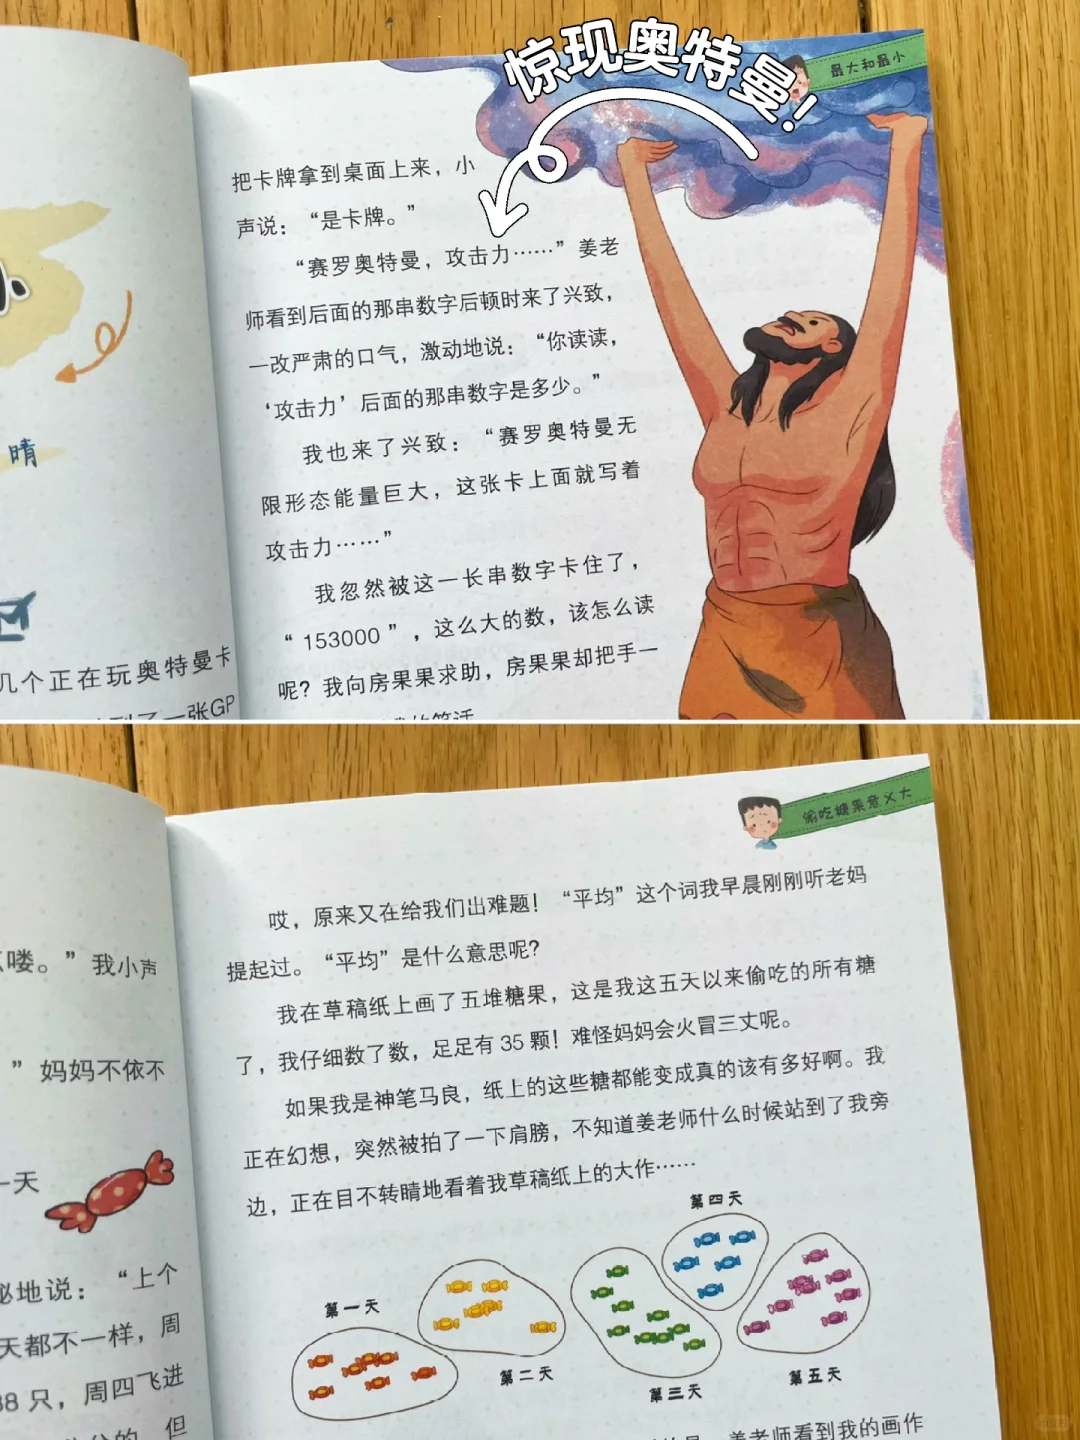 惊现奥特曼！
最大和最小
把卡牌拿到桌面上来，小
声说：“是卡牌。”
“赛罗奥特曼，攻击力……”姜老
师看到后面的那串数字后顿时来了兴致，
一改严肃的口气，激动地说：“你读读，
‘攻击力’后面的那串数字是多少。”
我也来了兴致：“赛罗奥特曼无
限形态能量巨大，这张卡上面就写着
攻击力……”
我忽然被这一长串数字卡住了，
“153000”，这么大的数，该怎么读
呢？我向房果果求助，房果果却把手一
晴
几个正在玩奥特曼卡
一张GP
偷吃糖果意义大
哎，原来又在给我们出难题！“平均”这个词我早晨刚刚听老妈
提起过。“平均”是什么意思呢？
我在草稿纸上画了五堆糖果，这是我这五天以来偷吃的所有糖
了，我仔细数了数，足足有 35 颗！难怪妈妈会火冒三丈呢。
如果我是神笔马良，纸上的这些糖都能变成真的该有多好啊。我
正在幻想，突然被拍了一下肩膀，不知道姜老师什么时候站到了我旁
边，正在目不转睛地看着我草稿纸上的大作……
第一天
第二天
第三天
第四天
第五天
姜老师看到我的画作
喽。”我小声
”妈妈不依不
一天
地说：“上个
天都不一样，周
38 只，周四飞进
但